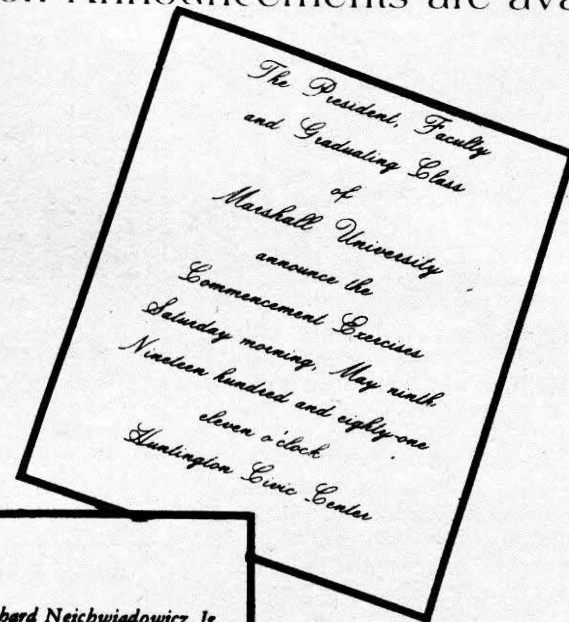 on Announcements are ava
The President, Faculty
and Graduating Class
of
Marshall University
announce the
Commencement Exercises
Saturday morning, May ninth
Nineteen hundred and eighty-one
eleven o'clock
Huntington Civic Center
hard Neichwiadowicz, Jr.